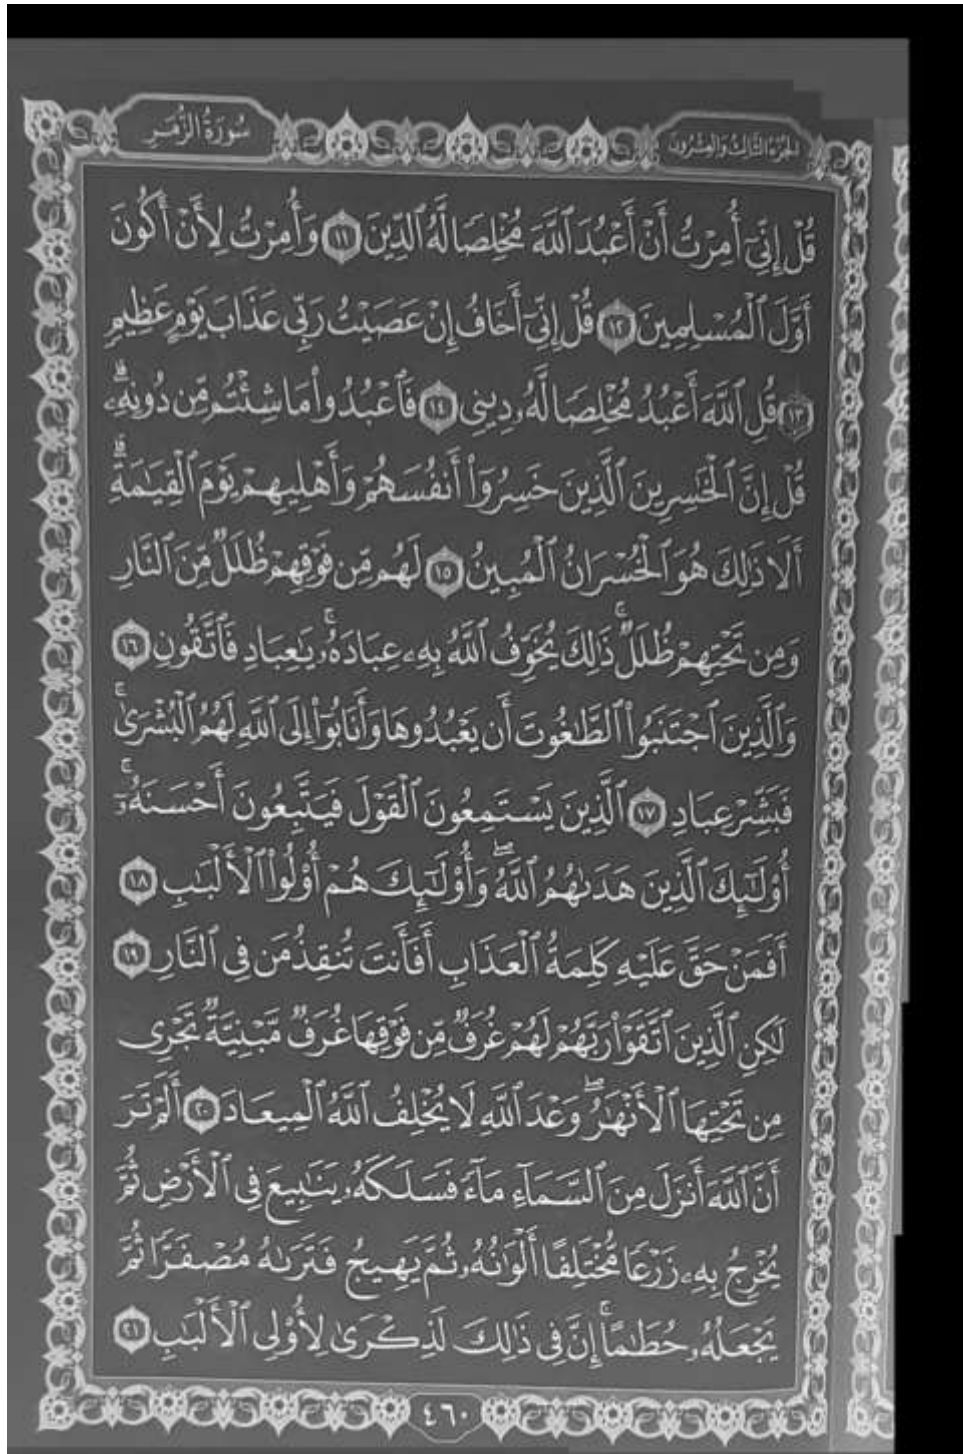 الجزء الثالث والعشرون
سُورَةُ الزُّمَرِ
قُلْ إِنِّىٓ أُمِرْتُ أَنْ أَعْبُدَ ٱللَّهَ مُخْلِصًا لَّهُ ٱلدِّينَ ١١ وَأُمِرْتُ لِأَنْ أَكُونَ
أَوَّلَ ٱلْمُسْلِمِينَ ١٢ قُلْ إِنِّىٓ أَخَافُ إِنْ عَصَيْتُ رَبِّى عَذَابَ يَوْمٍ عَظِيمٍ
١٣ قُلِ ٱللَّهَ أَعْبُدُ مُخْلِصًا لَّهُۥ دِينِى ١٤ فَٱعْبُدُوا۟ مَا شِئْتُم مِّن دُونِهِۦۗ
قُلْ إِنَّ ٱلْخَٰسِرِينَ ٱلَّذِينَ خَسِرُوٓا۟ أَنفُسَهُمْ وَأَهْلِيهِمْ يَوْمَ ٱلْقِيَٰمَةِۗ
أَلَا ذَٰلِكَ هُوَ ٱلْخُسْرَانُ ٱلْمُبِينُ ١٥ لَهُم مِّن فَوْقِهِمْ ظُلَلٌ مِّنَ ٱلنَّارِ
وَمِن تَحْتِهِمْ ظُلَلٌۚ ذَٰلِكَ يُخَوِّفُ ٱللَّهُ بِهِۦ عِبَادَهُۥۚ يَٰعِبَادِ فَٱتَّقُونِ ١٦
وَٱلَّذِينَ ٱجْتَنَبُوا۟ ٱلطَّٰغُوتَ أَن يَعْبُدُوهَا وَأَنَابُوٓا۟ إِلَى ٱللَّهِ لَهُمُ ٱلْبُشْرَىٰۚ
فَبَشِّرْ عِبَادِ ١٧ ٱلَّذِينَ يَسْتَمِعُونَ ٱلْقَوْلَ فَيَتَّبِعُونَ أَحْسَنَهُۥٓۚ
أُو۟لَٰٓئِكَ ٱلَّذِينَ هَدَىٰهُمُ ٱللَّهُۖ وَأُو۟لَٰٓئِكَ هُمْ أُو۟لُوا۟ ٱلْأَلْبَٰبِ ١٨
أَفَمَنْ حَقَّ عَلَيْهِ كَلِمَةُ ٱلْعَذَابِ أَفَأَنتَ تُنقِذُ مَن فِى ٱلنَّارِ ١٩
لَٰكِنِ ٱلَّذِينَ ٱتَّقَوْا۟ رَبَّهُمْ لَهُمْ غُرَفٌ مِّن فَوْقِهَا غُرَفٌ مَّبْنِيَّةٌ تَجْرِى
مِن تَحْتِهَا ٱلْأَنْهَٰرُۖ وَعْدَ ٱللَّهِ لَا يُخْلِفُ ٱللَّهُ ٱلْمِيعَادَ ٢٠ أَلَمْ تَرَ
أَنَّ ٱللَّهَ أَنزَلَ مِنَ ٱلسَّمَآءِ مَآءً فَسَلَكَهُۥ يَنَٰبِيعَ فِى ٱلْأَرْضِ ثُمَّ
يُخْرِجُ بِهِۦ زَرْعًا مُّخْتَلِفًا أَلْوَٰنُهُۥ ثُمَّ يَهِيجُ فَتَرَىٰهُ مُصْفَرًّا ثُمَّ
يَجْعَلُهُۥ حُطَٰمًاۚ إِنَّ فِى ذَٰلِكَ لَذِكْرَىٰ لِأُو۟لِى ٱلْأَلْبَٰبِ ٢١
٤٦٠